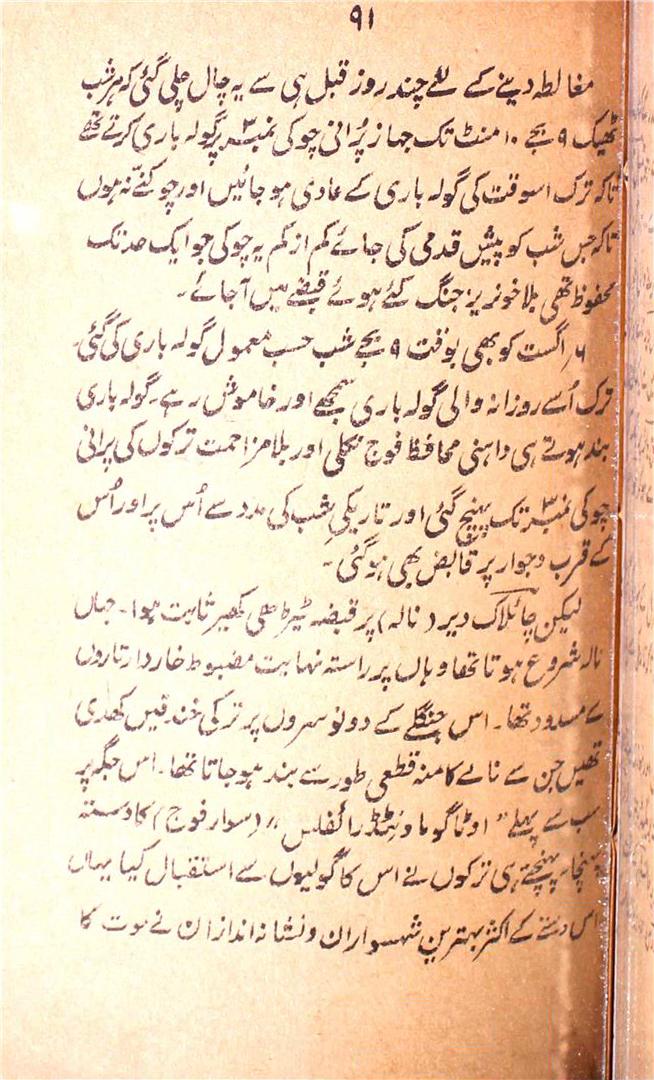 ۹۱
مغالطہ دینے کے لئے چند روز قبل ہی سے یہ چال چلی گئی کہ ہر شب
ٹھیک ۹ بجے ۱۰ منٹ تک جہاز پُرانی چوکی نمبر ۳ پر گولہ باری کرتے تھے
تاکہ ترک اسوقت کی گولہ باری کے عادی ہو جائیں اور چوکنے نہ ہوں
تاکہ جس شب کو پیش قدمی کی جائے کم از کم یہ چوکی جو ایک حد تک
محفوظ تھی بلا خونریز جنگ کئے ہوئے قبضے میں آجائے۔
۶ اگست کو بھی بوقت ۹ بجے شب حسب معمول گولہ باری کی گئی۔
ترک اُسے روزانہ والی گولہ باری سمجھے اور خاموش رہے۔ گولہ باری
بند ہوتے ہی داہنی محافظ فوج نکلی اور بلا مزاحمت ترکوں کی پرانی
چوکی نمبر ۳ تک پہنچ گئی اور تاریکیِ شب کی مدد سے اُس پر اور اُس
کے قرب و جوار پر قابض بھی ہوگئی۔
لیکن چائلاک دیر (نالہ) پر قبضہ ٹیڑھی کھیر ثابت ہوا۔ جہاں
نالہ شروع ہوتا تھا وہاں پر راستہ نہایت مضبوط خاردار تاروں
سے مسدود تھا۔ اس جنگلے کے دونو سروں پر ترکی خندقیں کھدی
تھیں جن سے نالے کا منہ قطعی طور سے بند ہو جاتا تھا۔ اس جگہ پر
سب سے پہلے "اوٹاگو ماونٹڈ رائفلس" (سوار فوج) کا دستہ
پہنچا۔ پہنچتے ہی ترکوں نے اس کا گولیوں سے استقبال کیا یہاں
اس دستے کے اکثر بہترین شہسواران و نشانہ اندازان نے موت کا